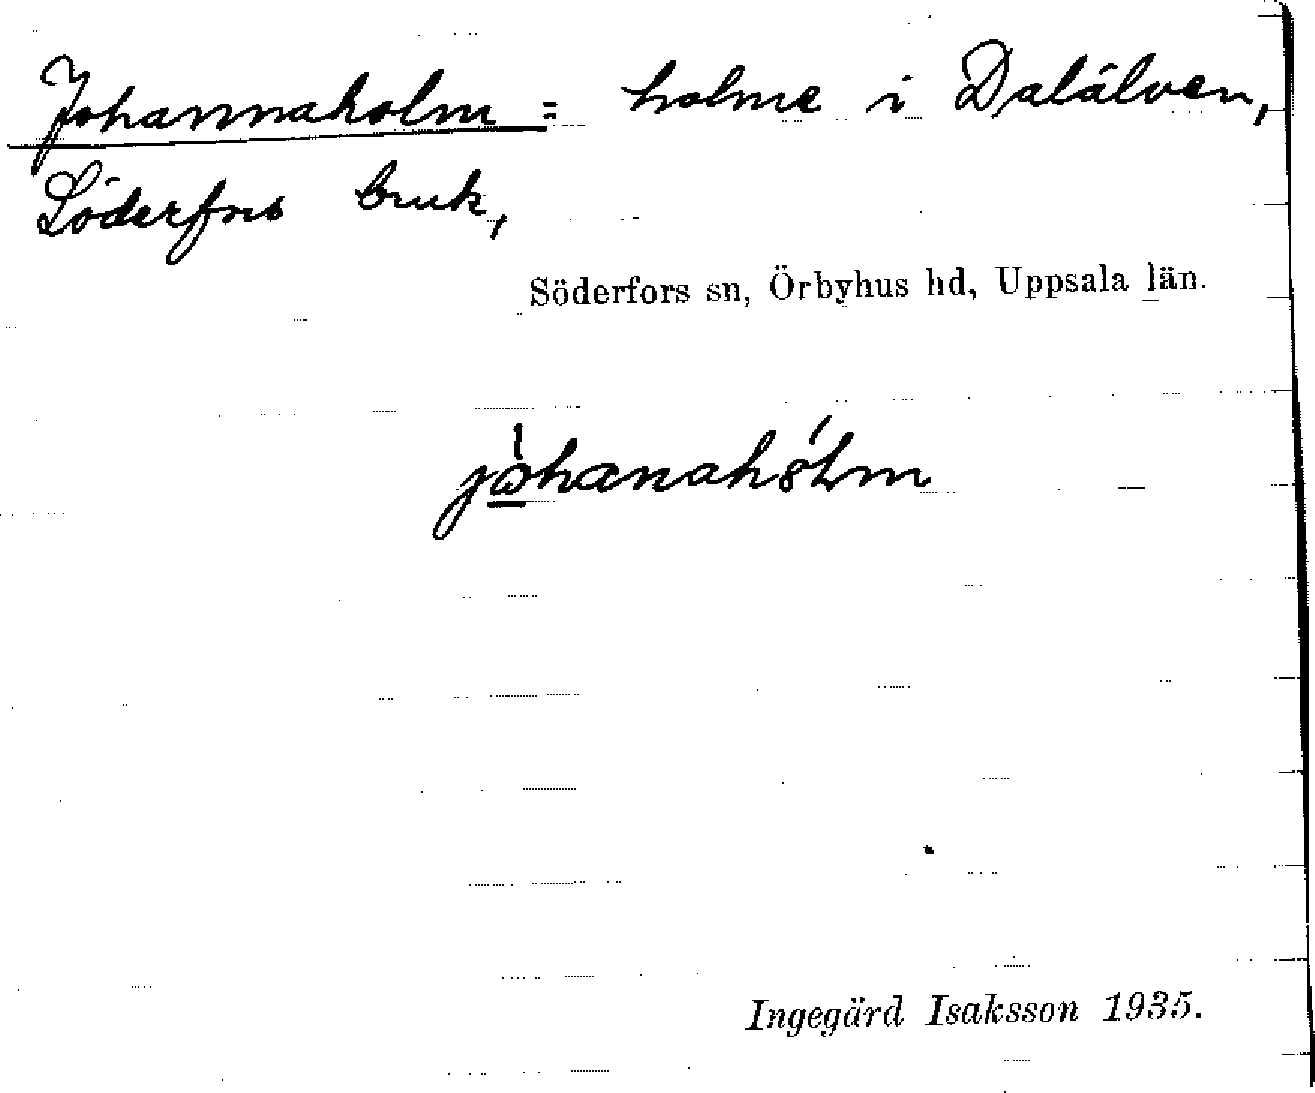 Johannaholm = holme i Dalälven,
Söderfors bruk,
Söderfors sn, Örbyhus hd, Uppsala län.
Ingegärd Isaksson 1935.